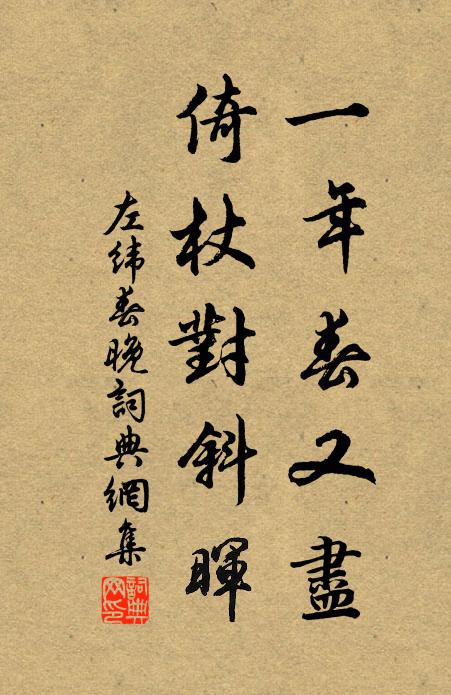 一年春又盡
倚杖對斜暉
左緯春晚詞典網集
詞典網印